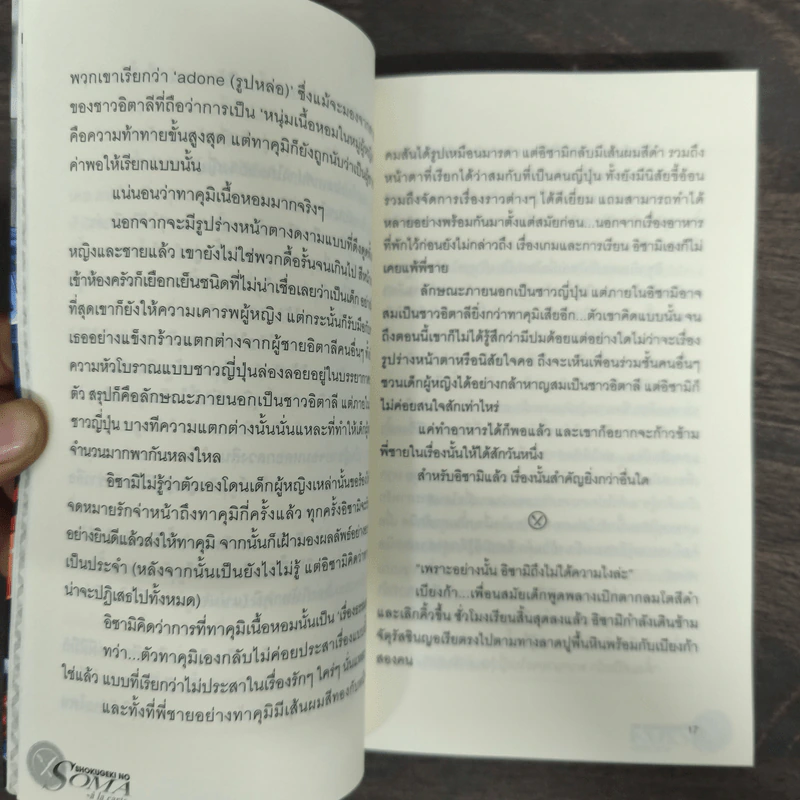 พวกเขาเรียกว่า 'adone (รูปหล่อ)' ซึ่งแม้จะมองจาก
ของชาวอิตาลีที่ถือว่าการเป็น 'หนุ่มเนื้อหอมในหมู่ผู้หญิง
คือความท้าทายขั้นสูงสุด แต่ทาคุมิก็ยังถูกนับว่าเป็นผู้
ค่าพอให้เรียกแบบนั้น
แน่นอนว่าทาคุมิเนื้อหอมมากจริงๆ
นอกจากจะมีรูปร่างหน้าตางดงามแบบที่ดึงดูด
หญิงและชายแล้ว เขายังไม่ใช่พวกดื้อรั้นจนเกินไป
เข้าห้องครัวก็เยือกเย็นชนิดที่ไม่น่าเชื่อเลยว่าเป็นเด็ก อย่าง
ที่สุดเขาก็ยังให้ความเคารพผู้หญิง แต่กระนั้นก็รับมือกับ
เธออย่างแข็งกร้าวแตกต่างจากผู้ชายอิตาลีคนอื่นๆ
ความหัวโบราณแบบชาวญี่ปุ่นล่องลอยอยู่ในบรรยากาศ
ตัว สรุปก็คือลักษณะภายนอกเป็นชาวอิตาลี แต่ภายใน
ชาวญี่ปุ่น บางทีความแตกต่างนั้นนั่นแหละที่ทำให้เด็กผู้
จำนวนมากพากันหลงใหล
อิซามิไม่รู้ว่าตัวเองโดนเด็กผู้หญิงเหล่านั้นขอร้อง
จดหมายรักจ่าหน้าถึงทาคุมิกี่ครั้งแล้ว ทุกครั้งอิซามิจะรับ
อย่างยินดีแล้วส่งให้ทาคุมิ จากนั้นก็เฝ้ามองผลลัพธ์อย่าง
เป็นประจำ (หลังจากนั้นเป็นยังไงไม่รู้ แต่อิซามิคิดว่า
น่าจะปฏิเสธไปทั้งหมด)
อิซามิคิดว่าการที่ทาคุมิเนื้อหอมนั้นเป็น 'เรื่องธรรม
ทว่า...ตัวทาคุมิเองกลับไม่ค่อยประสาเรื่องแบบ
ใช่แล้ว แบบที่เรียกว่าไม่ประสาในเรื่องรักๆ ใคร่ๆ นั่น
และทั้งที่พี่ชายอย่างทาคุมิมีเส้นผมสีทองกับ
SHOKUGEKI NO
SOMA
à la carte
คมสันได้รูปเหมือนมารดา แต่อิซามิกลับมีเส้นผมสีดำ รวมถึง
หน้าตาที่เรียกได้ว่าสมกับที่เป็นคนญี่ปุ่น ทั้งยังมีนิสัยขี้อ้อน
รวมถึงจัดการเรื่องราวต่างๆ ได้ดีเยี่ยม แถมสามารถทำได้
หลายอย่างพร้อมกันมาตั้งแต่สมัยก่อน...นอกจากเรื่องอาหาร
ที่พักไว้ก่อนยังไม่กล่าวถึง เรื่องเกมและการเรียน อิซามิเองก็ไม่
เคยแพ้พี่ชาย
ลักษณะภายนอกเป็นชาวญี่ปุ่น แต่ภายในอิซามิอาจ
สมเป็นชาวอิตาลียิ่งกว่าทาคุมิเสียอีก...ตัวเขาคิดแบบนั้น จน
ถึงตอนนี้เขาก็ไม่ได้รู้สึกว่ามีปมด้อยแต่อย่างใดไม่ว่าจะเรื่อง
รูปร่างหน้าตาหรือนิสัยใจคอ ถึงจะเห็นเพื่อนร่วมชั้นคนอื่นๆ
ชวนเด็กผู้หญิงได้อย่างกล้าหาญสมเป็นชาวอิตาลี แต่อิซามิก็
ไม่ค่อยสนใจสักเท่าไหร่
แค่ทำอาหารได้ก็พอแล้ว และเขาก็อยากจะก้าวข้าม
พี่ชายในเรื่องนั้นให้ได้สักวันหนึ่ง
สำหรับอิซามิแล้ว เรื่องนั้นสำคัญยิ่งกว่าอื่นใด
"เพราะอย่างนั้น อิซามิถึงไม่ได้ความไงล่ะ"
เบียงก้า...เพื่อนสมัยเด็กพูดพลางเบิกตากลมโตสีดำ
และเลิกคิ้วขึ้น ชั่วโมงเรียนสิ้นสุดลงแล้ว อิซามิกำลังเดินข้าม
จัตุรัสซินญอเรียตรงไปตามทางลาดปูพื้นหินพร้อมกับเบียงก้า
สองคน
17